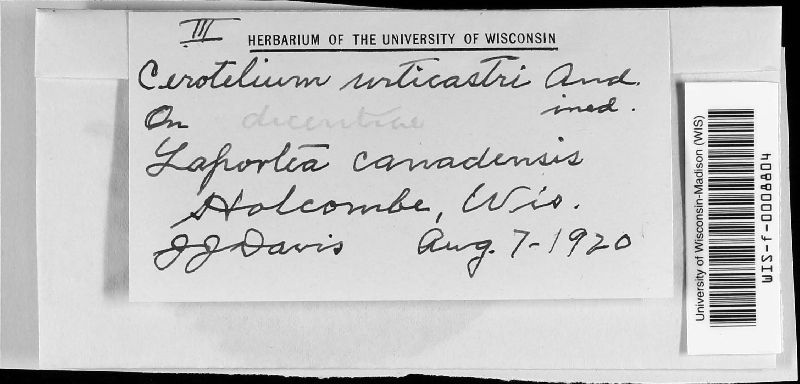 III
HERBARIUM OF THE UNIVERSITY OF WISCONSIN
Cerotelium urticastri And.
ined.
On dicentrae
Laportea canadensis
Holcombe, Wis.
JJ Davis Aug. 7-1920
University of Wisconsin-Madison (WIS)
WIS-f-0008804